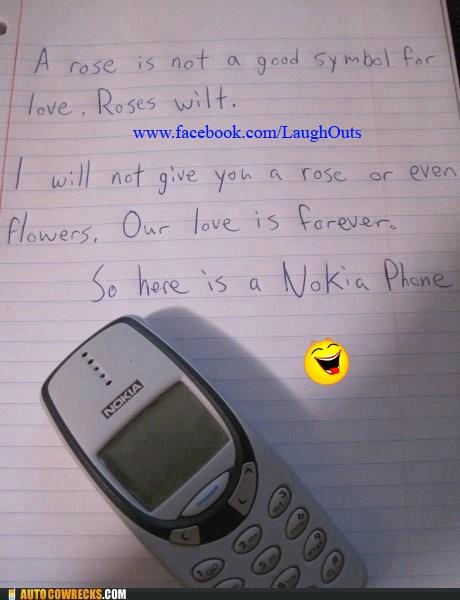 A rose is not a good symbol for
love. Roses wilt.
www.facebook.com/LaughOuts
I will not give you a rose or even
flowers. Our love is forever.
So here is a Nokia Phone
NOKIA
C
1
2
3
5
6
9
AUTOCOWRECKS.COM